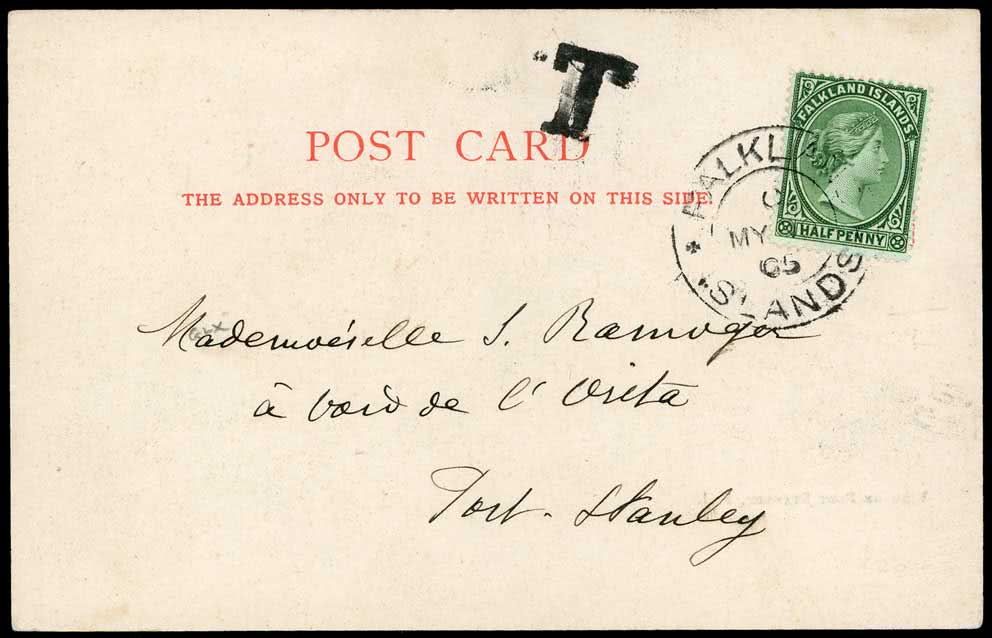 T
POST CARD
THE ADDRESS ONLY TO BE WRITTEN ON THIS SIDE.
FALKLAND ISLANDS
HALF PENNY
FALKLAND
MY
05
ISLANDS
Mademoiselle S. Ramoger
à bord de l'Orita
Port. Stanley